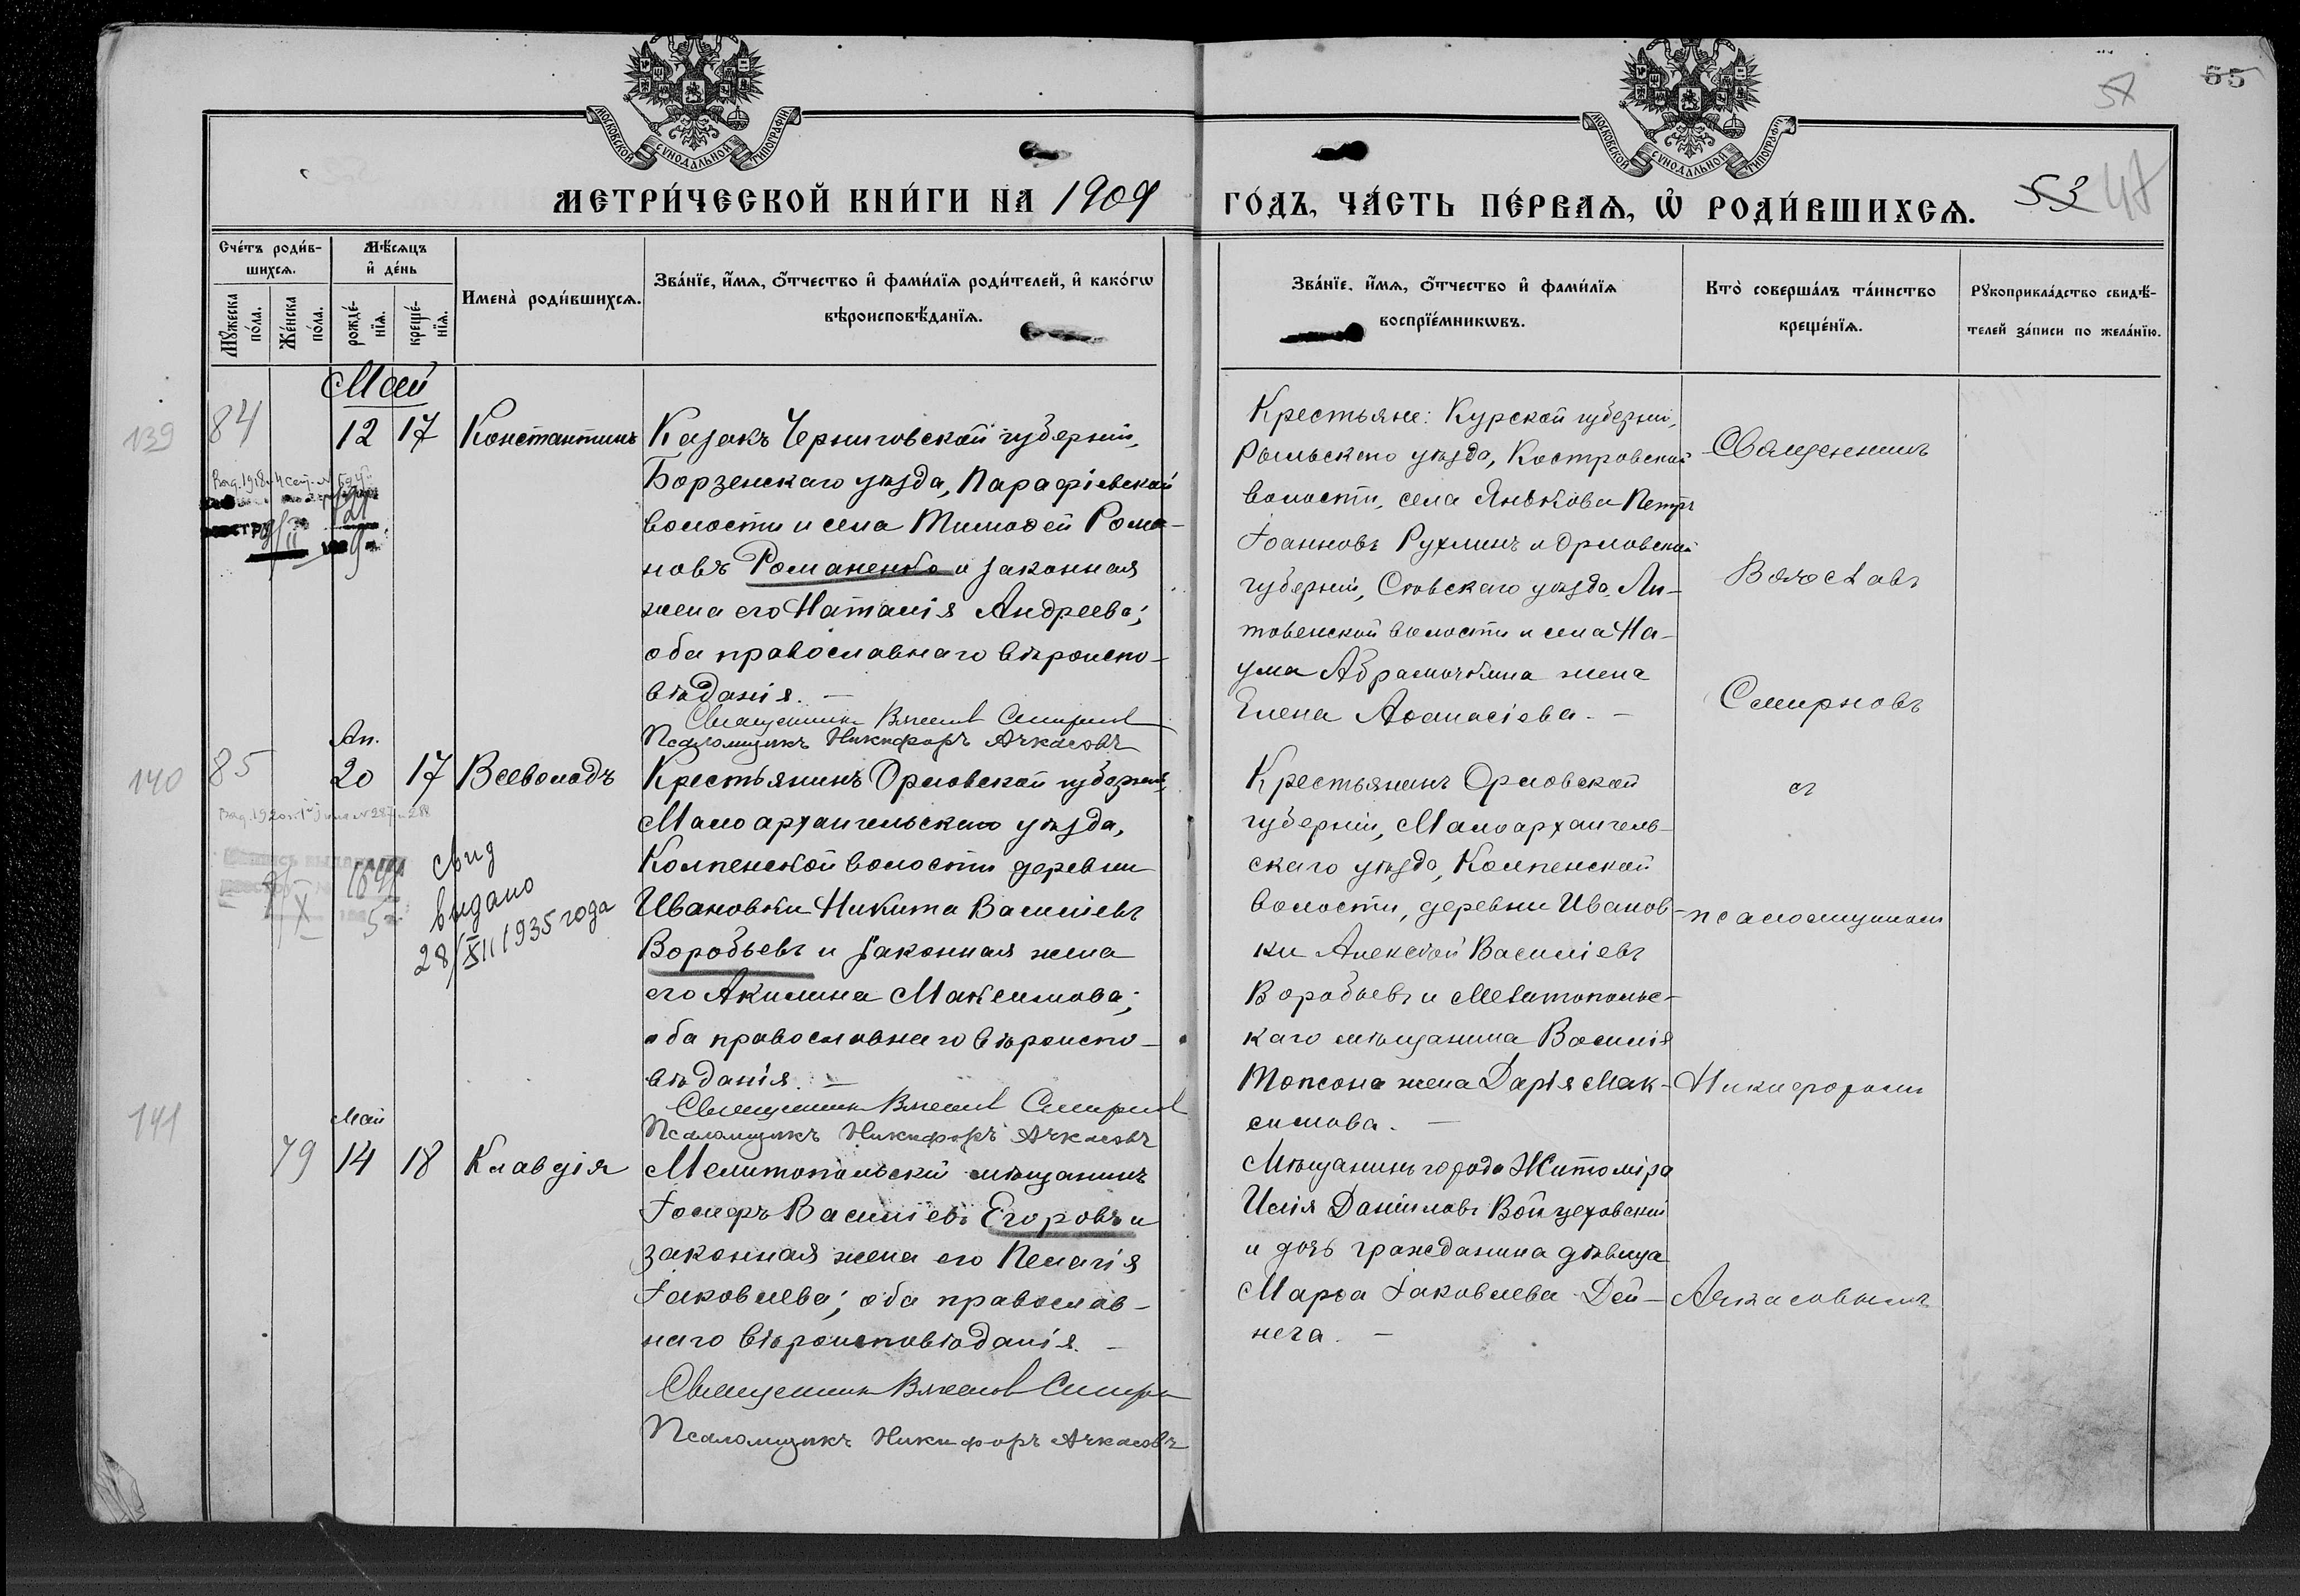 55
57
МОСКОВСКОЙ СѴНОДАЛЬНОЙ ТИПОГРАФІИ
МОСКОВСКОЙ СѴНОДАЛЬНОЙ ТИПОГРАФІИ
МЕТРИ́ЧЕСКОЙ КНИ́ГИ НА 1909
ГО́ДЪ, ЧА́СТЬ ПЕ́РВАѦ, Ѡ҆ РОДИ́ВШИХСѦ.
53 47
Сче́тъ роди́в-
шихсѧ.
Мꙋ́жеска
по́ла.
Же́нска
по́ла.
Мѣ́сѧцъ
и҆ де́нь
рожде́-
нїѧ.
креще́-
нїѧ.
Имена̀ роди́вшихсѧ.
Зва́нїе, и҆́мѧ, ѻ҆́тчество и҆ фами́лїѧ роди́телей, и҆ како́гѡ
вѣроисповѣ́данїѧ.
Зва́нїе, и҆́мѧ, ѻ҆́тчество и҆ фами́лїѧ
воспрїе́мникѡвъ.
Кто̀ соверша́лъ та́инство
креще́нїѧ.
Рꙋкоприкла́дство свидѣ́-
телей за́писи по жела́нїю.
Май
139
84
12
17
Константинъ
Казакъ Черниговской губерніи,
Борзенскаго уѣзда, Парафіевской
волости и села Тимоѳей Рома-
новъ Романенко и законная
жена его Наталія Андреева;
оба православнаго вѣроиспо-
вѣданія. —
Священникъ Смирнов
Псаломщикъ Никифоръ Ачкасовъ
Крестьяне: Курской губерніи,
Рыльскаго уѣзда, Костровской
волости, села Янькова Петръ
Іоанновъ Рухлинъ и Орловской
губерніи, Сѣвскаго уѣзда, Ли-
товенской волости и села На-
ума Абрамочкина жена
Елена Аѳанасіева. —
Священникъ
Смирновъ
Ап.
140
85
20
17
Всеволодъ
свид
выдано
28/XII 1935 года
Крестьянинъ Орловской губерніи,
Малоархангельскаго уѣзда,
Колпенской волости деревни
Ивановки Никита Василіевъ
Воробьевъ и законная жена
его Акилина Максимова;
оба православнаго вѣроиспо-
вѣданія. —
Священникъ Смирнов
Псаломщикъ Никифоръ Ачкасовъ
Крестьянинъ Орловской
губерніи, Малоархангель-
скаго уѣзда, Колпенской
волости, деревни Иванов-
ки Алексѣй Василіевъ
Воробьевъ и Мелитопольс-
каго мѣщанина Василія
Топсона жена Дарія Мак-
симова. —
съ
псаломщикомъ
Никифоромъ
Май
141
79
14
18
Клавдія
Мелитопольскій мѣщанинъ
Іосифъ Василіевъ Егоровъ и
законная жена его Пелагія
Іаковлева; оба православ-
наго вѣроисповѣданія. —
Священникъ
Псаломщикъ Никифоръ Ачкасовъ
Мѣщанинъ города Житоміра
Илія Даниловъ Войцеховскій
и дочь гражданина дѣвица
Марѳа Іаковлева Дей-
нега. —
Ачкасовымъ